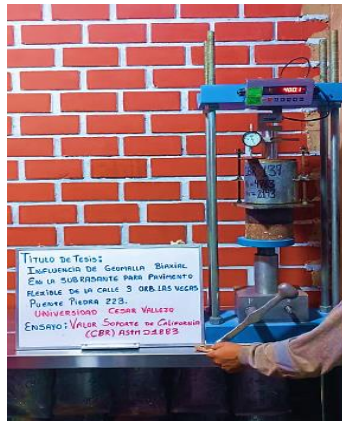 TÍTULO DE TESIS:
INFLUENCIA DE GEOMALLA BIAXIAL
EN LA SUBRASANTE PARA PAVIMENTO
FLEXIBLE DE LA CALLE 3 URB. LAS VEGAS
PUENTE PIEDRA 223.
UNIVERSIDAD CESAR VALLEJO
ENSAYO: VALOR SOPORTE DE CALIFORNIA
(CBR) ASTM D1883